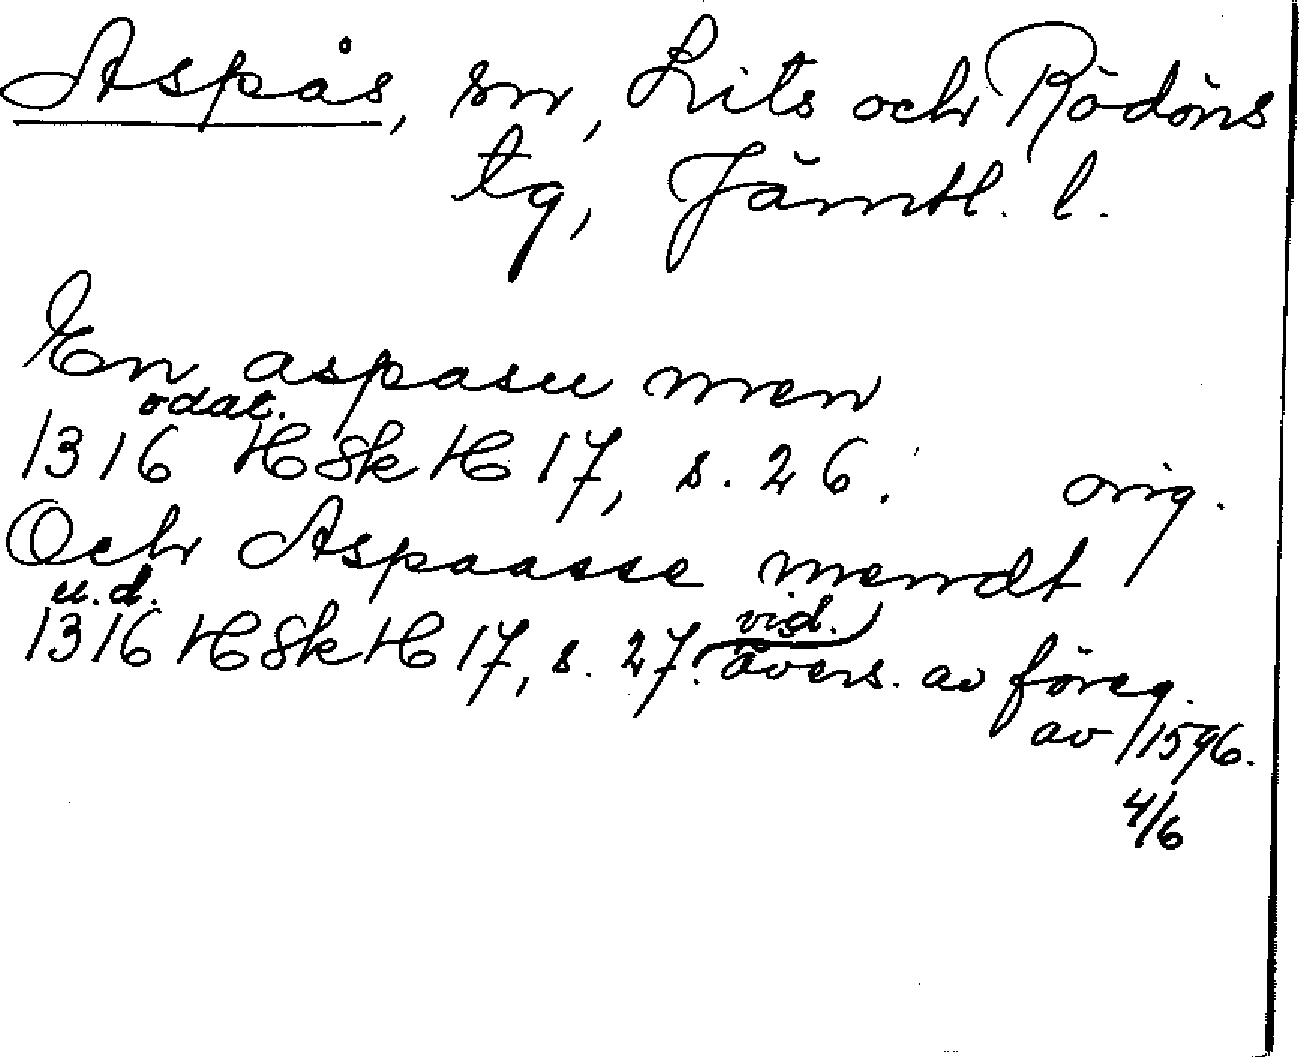 Aspås, sn, Lits och Rödöns
tg, Jämtl. l.
En aspasu men
odat.
1316 HSkH 17, s. 26. orig.
Och Aspaasse menndt
u.d.
vid.
1316 HSkH 17, s. 27. övers. avföreg.
av 4/6 1596.